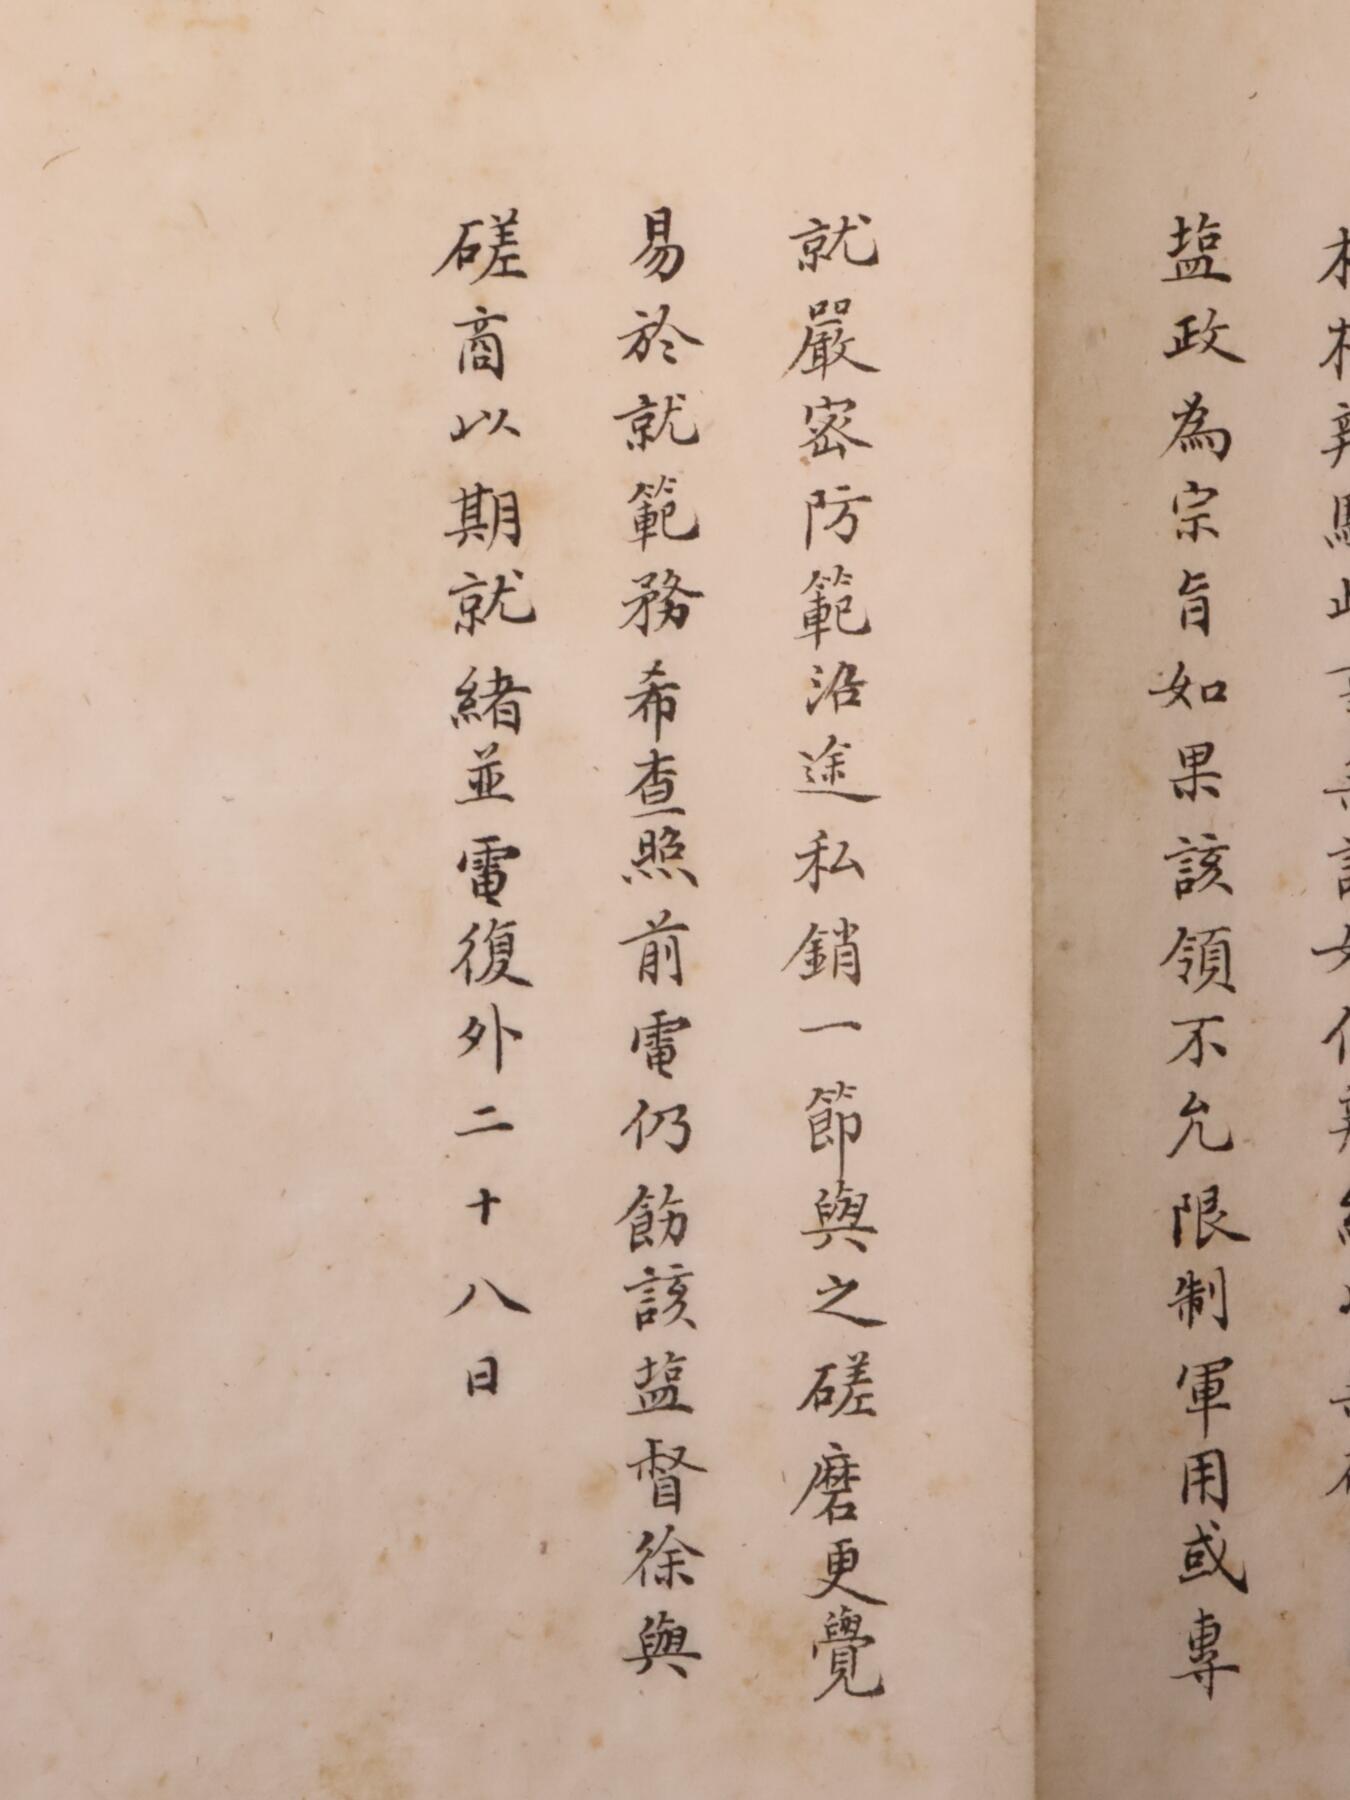 塩政為宗旨如果該領不允限制軍用或專
就嚴密防範沿途私銷一節與之磋磨更覺
易於就範務希查照前電仍飭該塩督徐與
磋商以期就緒並電復外二十八日